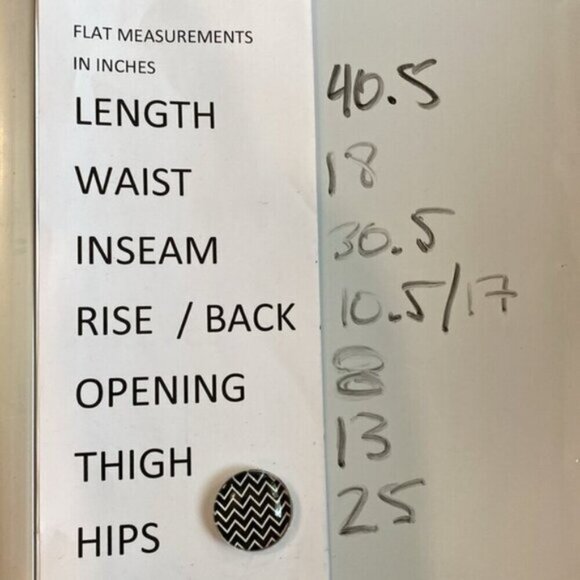 FLAT MEASUREMENTS
IN INCHES
LENGTH 40.5
WAIST 18
INSEAM 30.5
RISE / BACK 10.5/17
OPENING 8
THIGH 13
HIPS 25